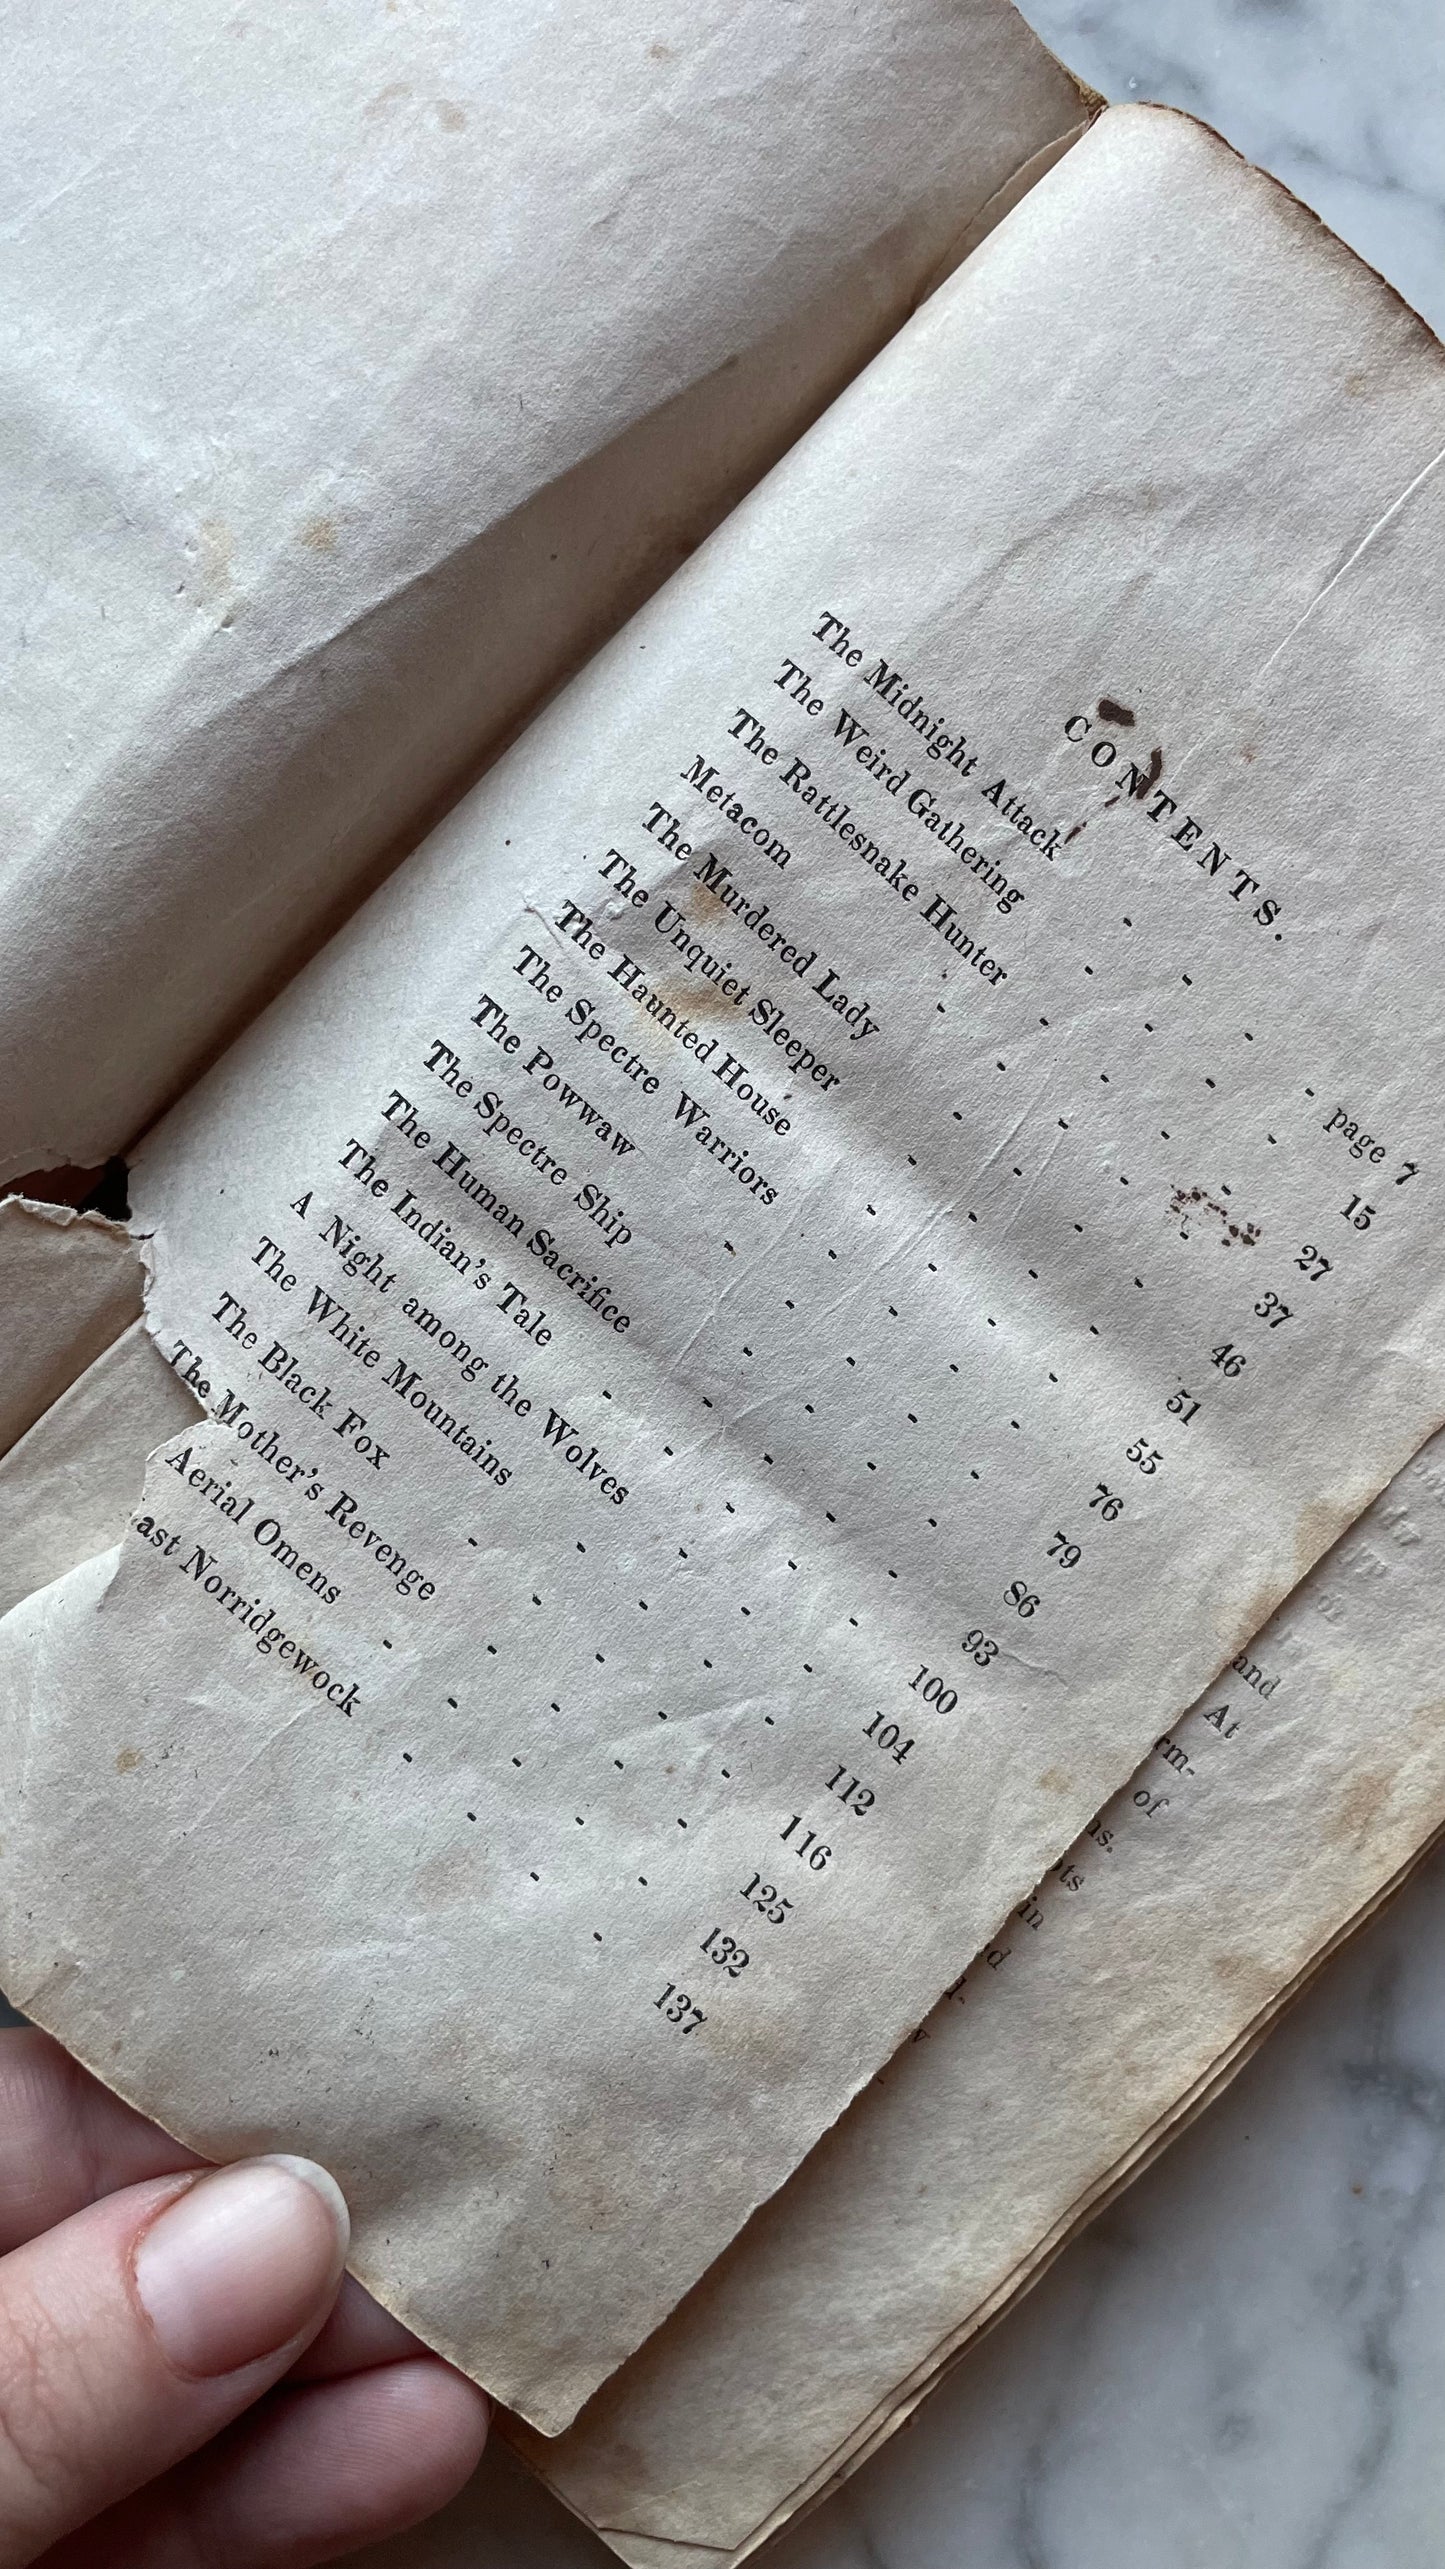 CONTENTS.
The Midnight Attack - - - - page 7
The Weird Gathering - - - - 15
The Rattlesnake Hunter - - - - 27
Metacom - - - - - 37
The Murdered Lady - - - - 46
The Unquiet Sleeper - - - - 51
The Haunted House - - - - 55
The Spectre Warriors - - - - 76
The Powwaw - - - - - 79
The Spectre Ship - - - - 86
The Human Sacrifice - - - - 93
The Indian's Tale - - - - - 100
A Night among the Wolves - - - 104
The White Mountains - - - - 112
The Black Fox - - - - - 116
The Mother's Revenge - - - - 125
Aerial Omens - - - - - 132
ast Norridgewock - - - - 137
and
At
rm-
of
ns.
ots
in